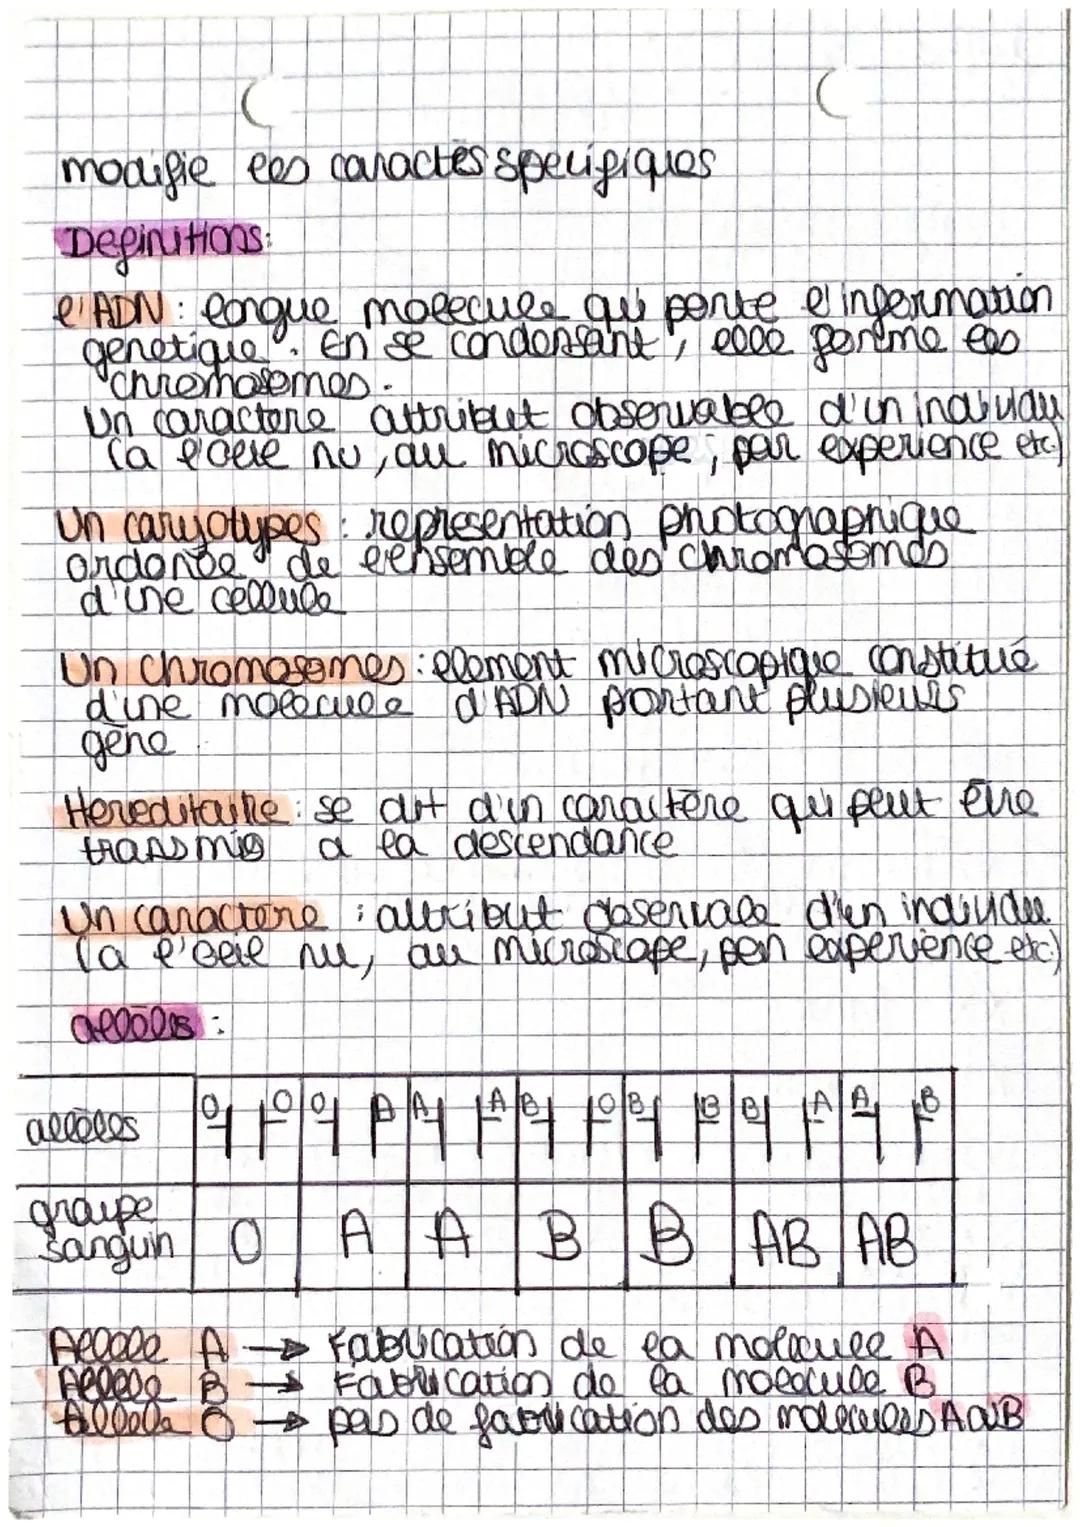 modifie les caractès specifiques
Definitions:
l'ADN : longue molecule qui porte l'information
genetique. En se condensant, elle forme les
chromosomes.
Un caractere attribut observable d'un individu
(a l'oeil nu, au microscope, par experience etc)
Un caryotypes : representation photographique
ordonée de l'ensemble des chromosomes
d'une cellule
Un chromosomes : element microscopique constitué
d'une molecule d'ADN portant plusieurs
gène.
Hereditaire : se dit d'un caractère qui peut être
transmis a la descendance
Un caractere : attribut observale d'un individu
(a l'oeil nu, au microscope, par experience etc)
allèles :
allèles O O O A A A B O B B B A A B
groupe
sanguin O A A B B AB AB
Allele A → Fabrication de la molecule A
Allele B → Fabrication de la molecule B
Allele O → pas de fabrication des molecules A ou B